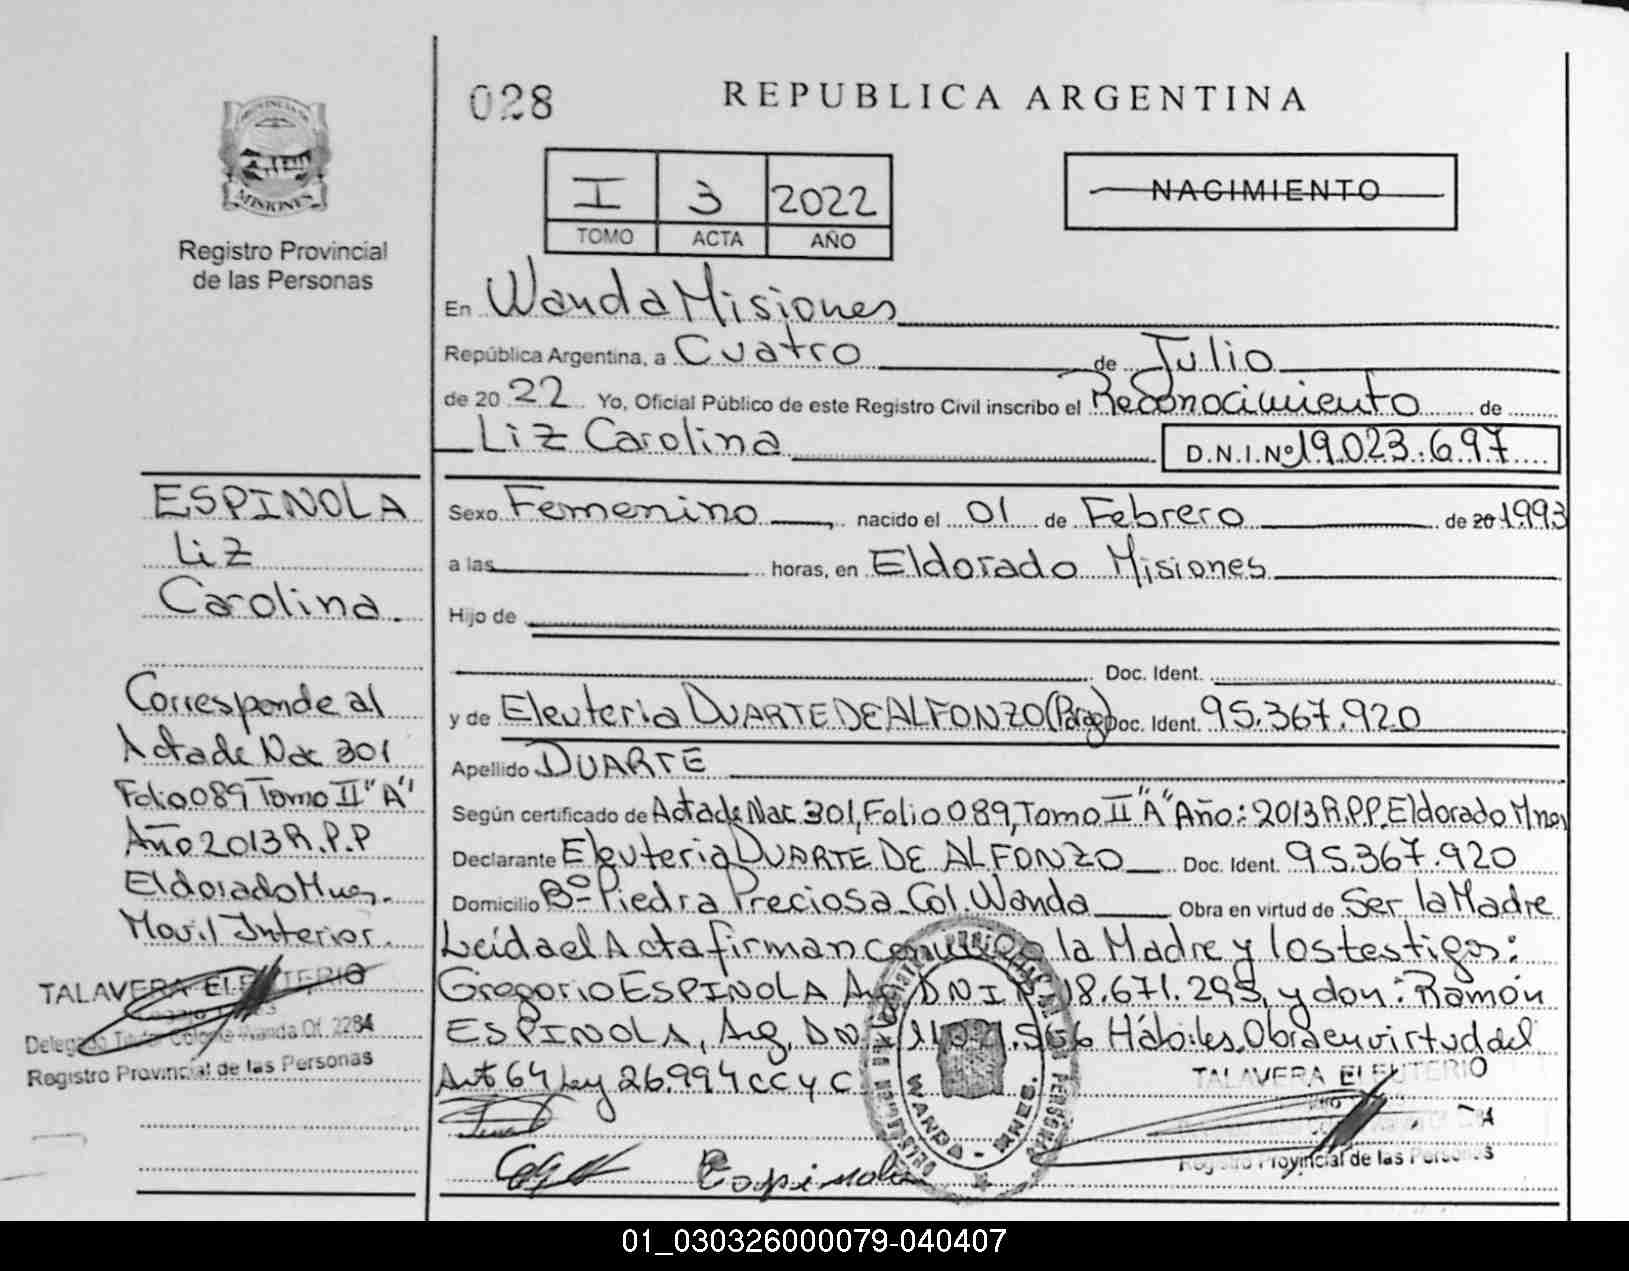 PROVINCIA DE
MISIONES
Registro Provincial
de las Personas
ESPINOLA
Liz
Carolina.
Corresponde al
Acta de Nac 301
Folio 089 Tomo II "A"
Año 2013 R.P.P
Eldorado Mnes.
Movil Interior.
TALAVERA ELEUTERIO
Delegado Titular Colonia Wanda Of. 2284
Registro Provincial de las Personas
028
REPUBLICA ARGENTINA
I 3 2022
TOMO ACTA AÑO
NACIMIENTO
En Wanda Misiones
República Argentina, a Cuatro de Julio
de 20 22 Yo, Oficial Público de este Registro Civil inscribo el Reconocimiento de
Liz Carolina D.N.I.Nº 19.023.697
Sexo Femenino, nacido el 01 de Febrero de 20 1993
a las horas, en Eldorado Misiones
Hijo de
Doc. Ident.
y de Eleuteria DUARTE DE ALFONZO (Parag) Doc. Ident. 95.367.920
Apellido DUARTE
Según certificado de Acta de Nac 301, Folio 089, Tomo II "A" Año: 2013 R.P.P. Eldorado Mnes
Declarante Eleuteria DUARTE DE ALFONZO Doc. Ident. 95.367.920
Domicilio Bº Piedra Preciosa Col. Wanda Obra en virtud de Ser la Madre
Leida el Acta firman conmigo la Madre y los testigos:
Gregorio ESPINOLA Arg. DNI Nº 18.671.295, y don: Ramón
ESPINOLA, Arg. DNI 566 Hábiles, Obra en virtud del
Art 64 Ley 26.994 CC y C.
WANDA - MNES.
TALAVERA ELEUTERIO
Registro Provincial de las Personas
Espinola
01_030326000079-040407